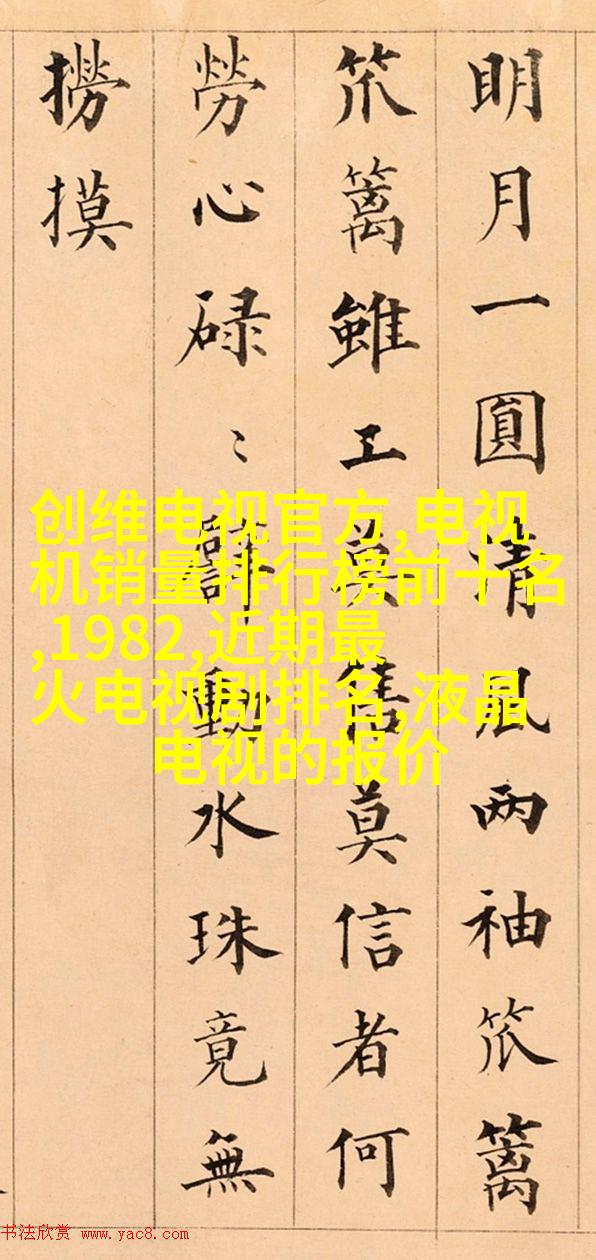 明月一圓清風两袖笊篱
笊篱雖工莫售莫信者何
勞心碌〻動水珠竟無
撈摸
创维电视官方,电视
机销量排行榜前十名
,1982,近期最
火电视剧排名,液晶
电视的报价
书法欣赏 www.yac8.com